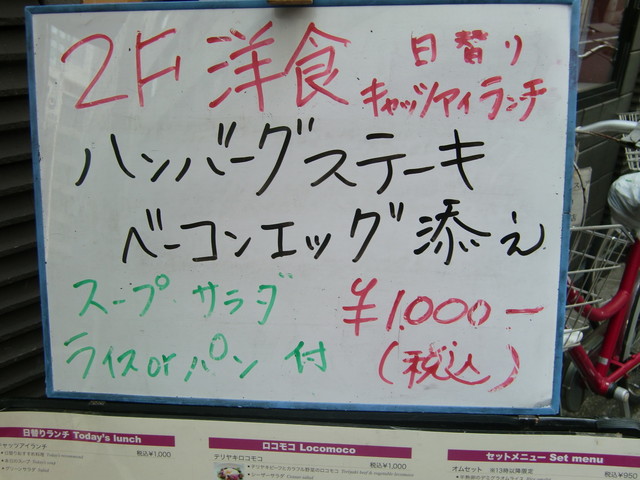 2F 洋食 日替り
キャッツアイランチ
ハンバーグステーキ
ベーコンエッグ添え
スープ サラダ
ライスorパン 付
¥1.000-
(税込)
日替りランチ Today's lunch
キャッツアイランチ 税込¥1,000
ロコモコ Locomoco
テリヤキロコモコ 税込¥1,000
セットメニュー Set menu
オムセット ※13時以降限定 税込¥950